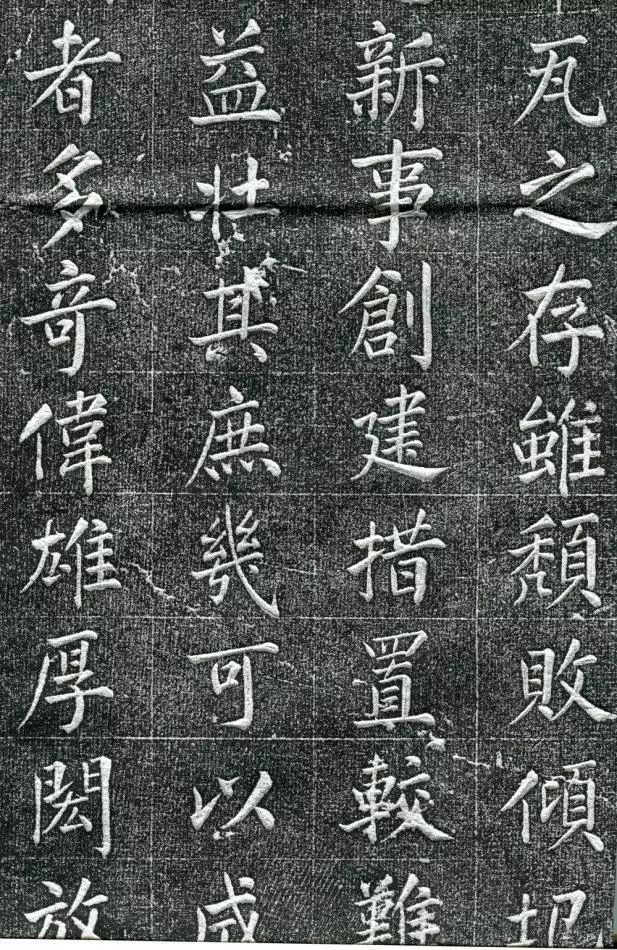 瓦之存雖頽敗傾圯
新事創建措置較難
益壮其庶幾可以成
者多竒偉雄厚閎放